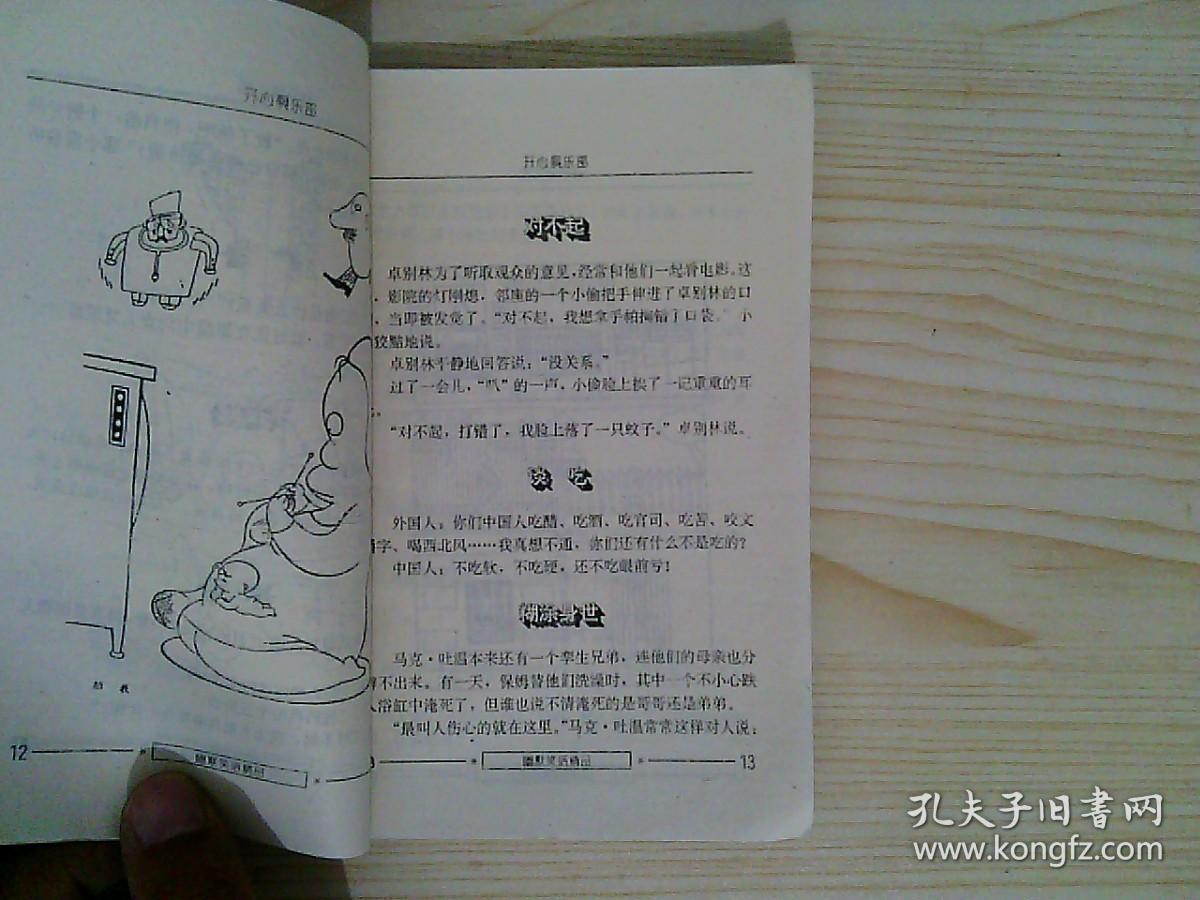 开心俱乐部
12
幽默笑话精品
开心俱乐部
对不起
卓别林为了听取观众的意见，经常和他们一起看电影。这
，影院的灯刚熄，邻座的一个小偷把手伸进了卓别林的口
，当即被发觉了。“对不起，我想拿手帕掏错了口袋。”小
狡黠地说。
卓别林平静地回答说：“没关系。”
过了一会儿，“叭”的一声，小偷脸上挨了一记重重的耳
“对不起，打错了，我脸上落了一只蚊子。”卓别林说。
谈吃
外国人：你们中国人吃醋、吃酒、吃官司、吃苦、咬文
字、喝西北风……我真想不通，你们还有什么不是吃的？
中国人：不吃软，不吃硬，还不吃眼前亏！
糊涂身世
马克·吐温本来还有一个孪生兄弟，连他们的母亲也分
辨不出来。有一天，保姆替他们洗澡时，其中一个不小心跌
入浴缸中淹死了，但谁也说不清淹死的是哥哥还是弟弟。
“最叫人伤心的就在这里。”马克·吐温常常这样对人说：
幽默笑话精品
13
孔夫子旧书网
www.kongfz.com